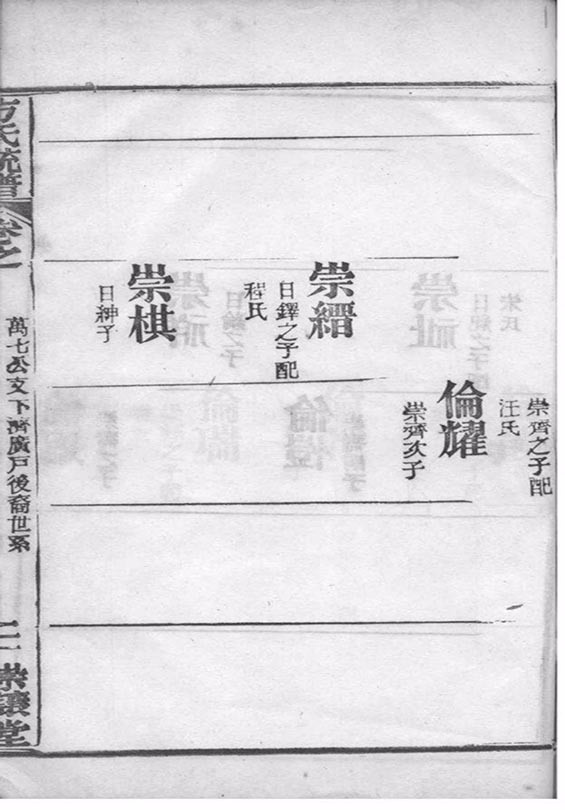 崇齊之子配
汪氏
倫耀
崇齊次子
崇縉
日鐸之子配
程氏
崇棋
日紳子
方氏統譜
卷之一
萬七公文下濟廣戶後裔世系
崇讓堂